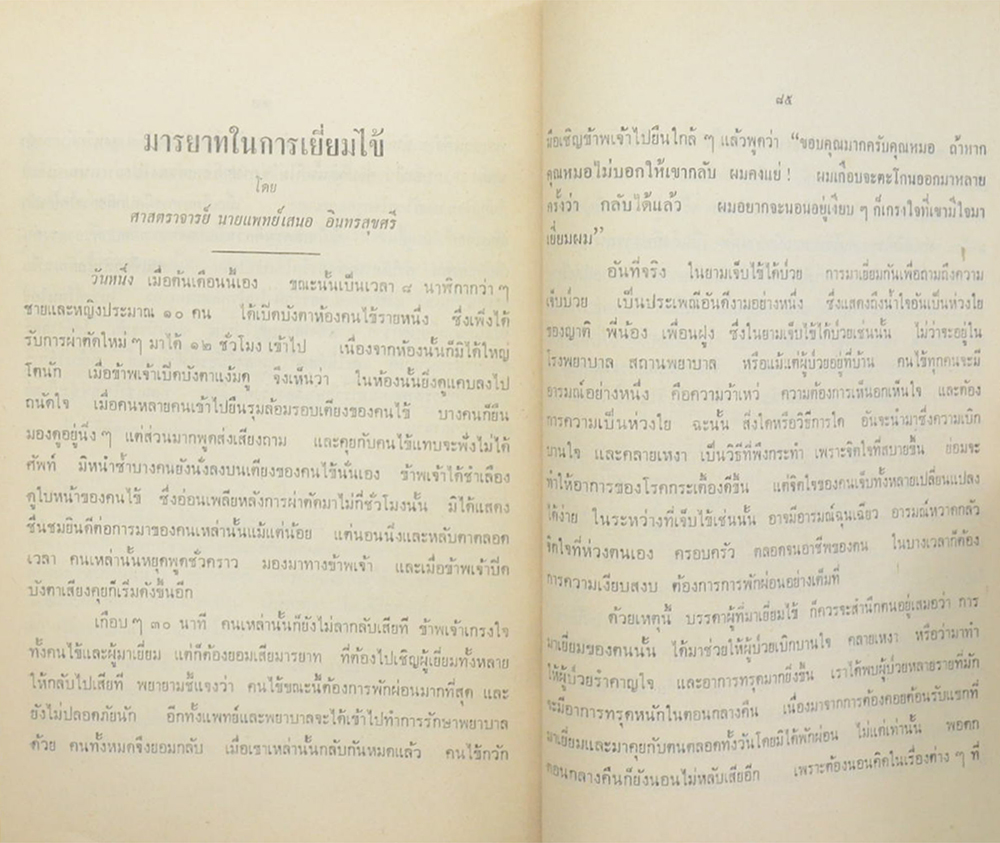 มารยาทในการเยี่ยมไข้
โดย
ศาสตราจารย์ นายแพทย์เสนอ อินทรสุขศรี
วันหนึ่ง เมื่อต้นเดือนนี้เอง ขณะนั้นเป็นเวลา ๘ นาฬิกากว่า ๆ
ชายและหญิงประมาณ ๑๐ คน ได้เปิดบังตาห้องคนไข้รายหนึ่ง ซึ่งเพิ่งได้
รับการผ่าตัดใหม่ ๆ มาได้ ๑๒ ชั่วโมง เข้าไป เนื่องจากห้องนั้นก็มิได้ใหญ่
โตนัก เมื่อข้าพเจ้าเปิดบังตาแง้มดู จึงเห็นว่า ในห้องนั้นยิ่งดูแคบลงไป
ถนัดใจ เมื่อคนหลายคนเข้าไปยืนรุมล้อมรอบเตียงของคนไข้ บางคนก็ยืน
มองดูอยู่นิ่ง ๆ แต่ส่วนมากพูดส่งเสียงถาม และคุยกับคนไข้แทบจะฟังไม่ได้
ศัพท์ มิหนำซ้ำบางคนยังนั่งลงบนเตียงของคนไข้นั่นเอง ข้าพเจ้าได้ชำเลือง
ดูใบหน้าของคนไข้ ซึ่งอ่อนเพลียหลังการผ่าตัดมาไม่กี่ชั่วโมงนั้น มิได้แสดง
ชื่นชมยินดีต่อการมาของคนเหล่านั้นแม้แต่น้อย แต่นอนนิ่งและหลับตาตลอด
เวลา คนเหล่านั้นหยุดพูดชั่วคราว มองมาทางข้าพเจ้า และเมื่อข้าพเจ้าปิด
บังตาเสียงคุยก็เริ่มดังขึ้นอีก
เกือบ ๆ ๓๐ นาที คนเหล่านั้นก็ยังไม่ลากลับเสียที ข้าพเจ้าเกรงใจ
ทั้งคนไข้และผู้มาเยี่ยม แต่ก็ต้องยอมเสียมารยาท ที่ต้องไปเชิญผู้เยี่ยมทั้งหลาย
ให้กลับไปเสียที พยายามชี้แจงว่า คนไข้ขณะนี้ต้องการพักผ่อนมากที่สุด และ
ยังไม่ปลอดภัยนัก อีกทั้งแพทย์และพยาบาลจะได้เข้าไปทำการรักษาพยาบาล
ด้วย คนทั้งหมดจึงยอมกลับ เมื่อเขาเหล่านั้นกลับกันหมดแล้ว คนไข้กวัก
๘๕
มือเชิญข้าพเจ้าไปยืนใกล้ ๆ แล้วพูดว่า “ขอบคุณมากครับคุณหมอ ถ้าหาก
คุณหมอไม่บอกให้เขากลับ ผมคงแย่ ! ผมเกือบจะตะโกนออกมาหลาย
ครั้งว่า กลับได้แล้ว ผมอยากจะนอนอยู่เงียบ ๆ ก็เกรงใจที่เขามีใจมา
เยี่ยมผม”
อันที่จริง ในยามเจ็บไข้ได้ป่วย การมาเยี่ยมกันเพื่อถามถึงความ
เจ็บป่วย เป็นประเพณีอันดีงามอย่างหนึ่ง ซึ่งแสดงถึงน้ำใจอันเป็นห่วงใย
ของญาติ พี่น้อง เพื่อนฝูง ซึ่งในยามเจ็บไข้ได้ป่วยเช่นนั้น ไม่ว่าจะอยู่ใน
โรงพยาบาล สถานพยาบาล หรือแม้แต่ผู้ป่วยอยู่ที่บ้าน คนไข้ทุกคนจะมี
อารมณ์อย่างหนึ่ง คือความว้าเหว่ ความต้องการเห็นอกเห็นใจ และต้อง
การความเป็นห่วงใย ฉะนั้น สิ่งใดหรือวิธีการใด อันจะนำมาซึ่งความเบิก
บานใจ และคลายเหงา เป็นวิธีที่พึงกระทำ เพราะจิตใจที่สบายขึ้น ย่อมจะ
ทำให้อาการของโรคกระเตื้องดีขึ้น แต่จิตใจของคนเจ็บทั้งหลายเปลี่ยนแปลง
ได้ง่าย ในระหว่างที่เจ็บไข้เช่นนั้น อาจมีอารมณ์ฉุนเฉียว อารมณ์หวาดกลัว
จิตใจที่ห่วงตนเอง ครอบครัว ตลอดจนอาชีพของตน ในบางเวลาก็ต้อง
การความเงียบสงบ ต้องการการพักผ่อนอย่างเต็มที่
ด้วยเหตุนี้ บรรดาผู้ที่มาเยี่ยมไข้ ก็ควรจะสำนึกตนอยู่เสมอว่า การ
มาเยี่ยมของตนนั้น ได้มาช่วยให้ผู้ป่วยเบิกบานใจ คลายเหงา หรือว่ามาทำ
ให้ผู้ป่วยรำคาญใจ และอาการทรุดมากยิ่งขึ้น เราได้พบผู้ป่วยหลายรายที่มัก
จะมีอาการทรุดหนักในตอนกลางคืน เนื่องมาจากการต้องคอยต้อนรับแขกที่
มาเยี่ยมและมาคุยกับตนตลอดทั้งวันโดยมิได้พักผ่อน ไม่แต่เท่านั้น พอตก
ตอนกลางคืนก็ยังนอนไม่หลับเสียอีก เพราะต้องนอนคิดในเรื่องต่าง ๆ ที่